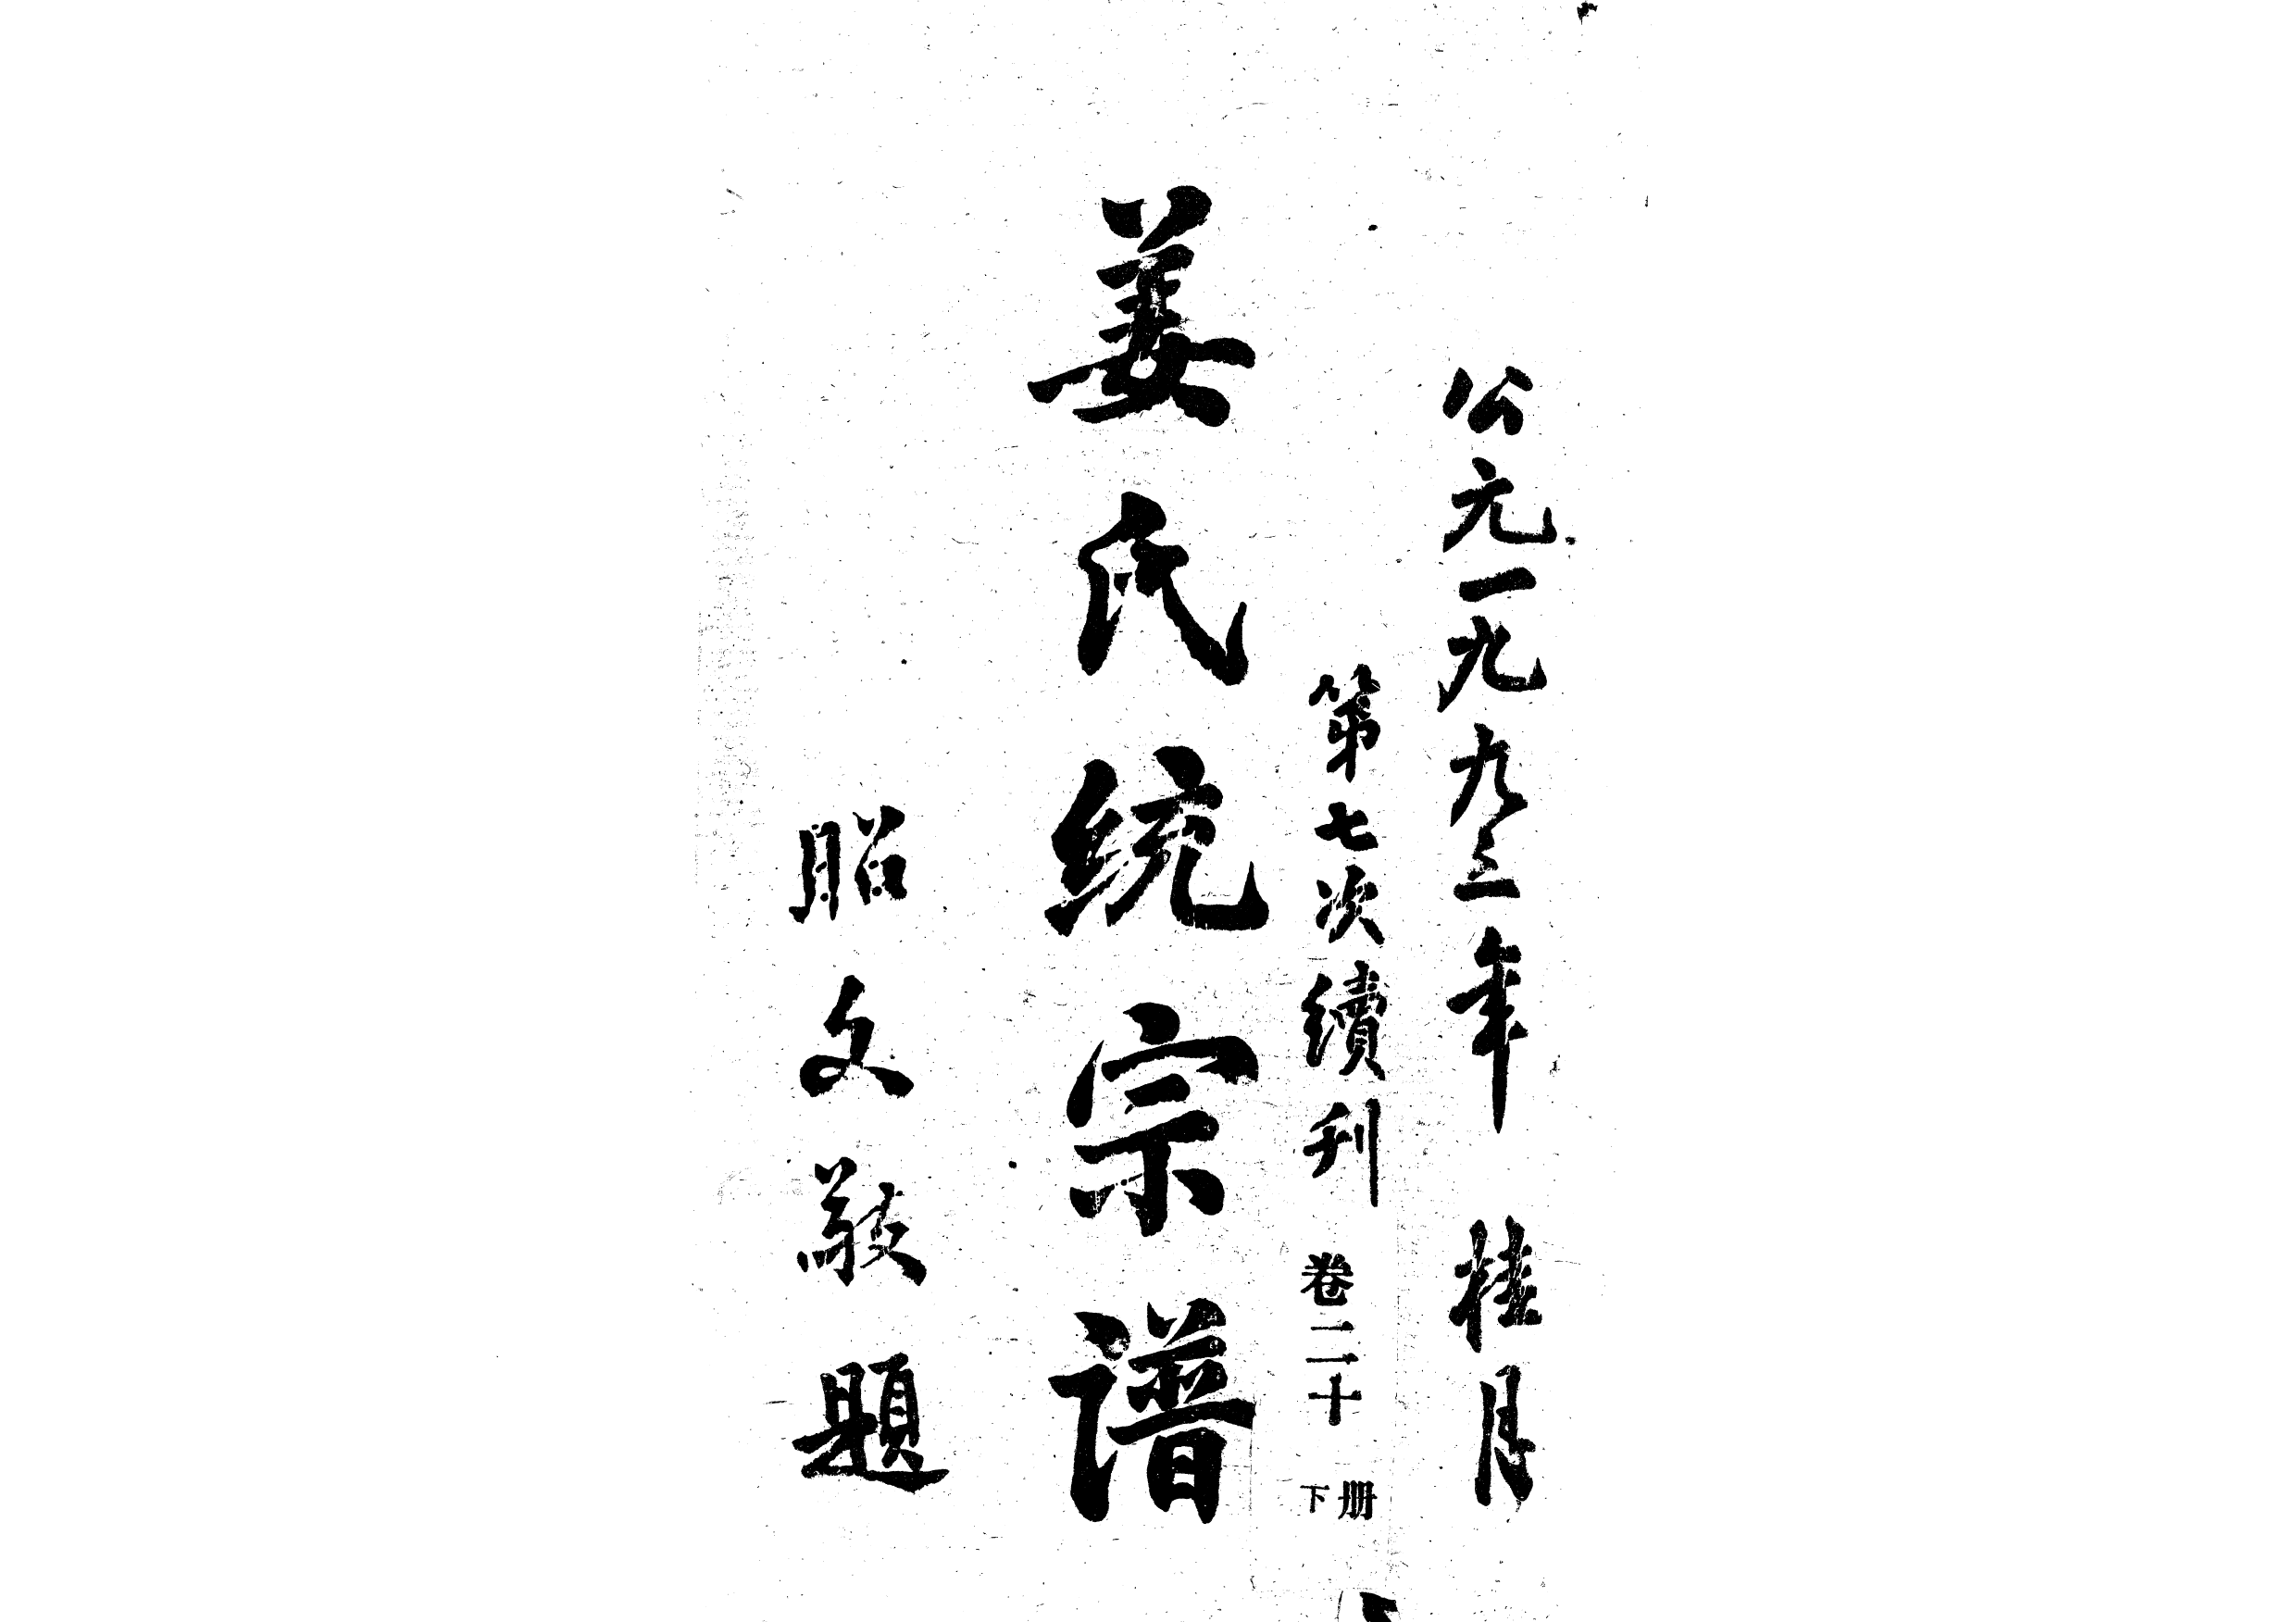 公元一九九三年 桂月
第七次續刊 卷二十 下册
姜氏统宗谱
昭文敬题